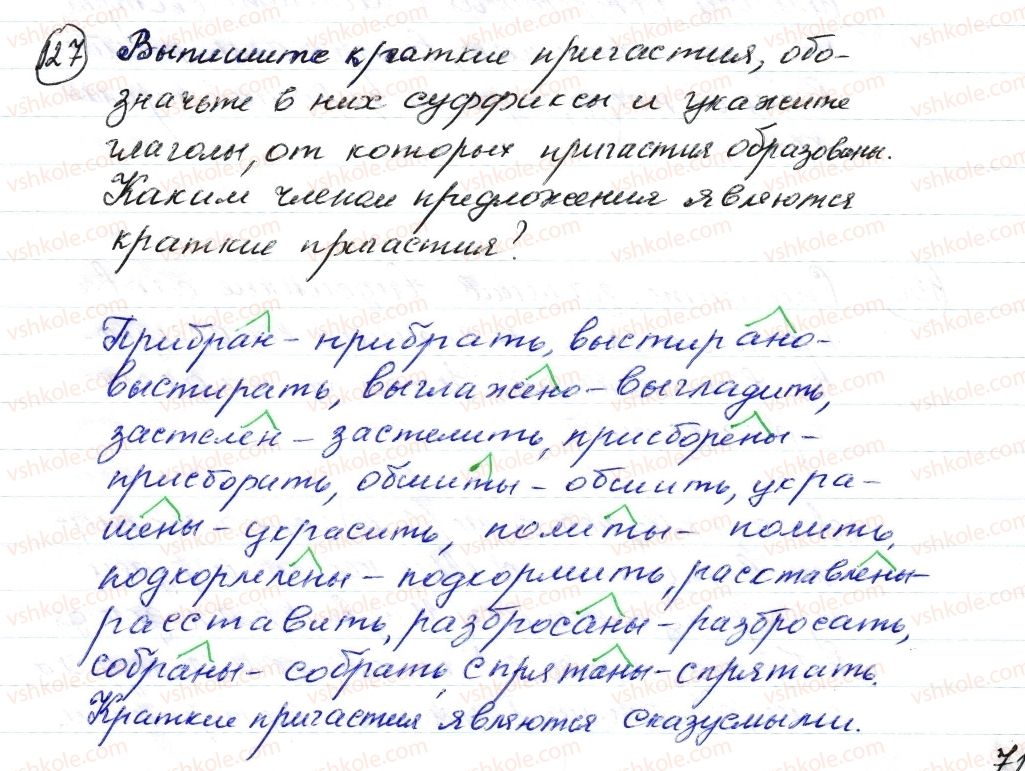 127 Выпишите краткие причастия, обо-
значьте в них суффиксы и укажите
глаголы, от которых причастия образованы.
Каким членом предложения являются
краткие причастия?
Прибран – прибрать, выстирано –
выстирать, выглажено – выгладить,
застелен – застелить, присборены –
присборить, обшиты – обшить, укра-
шены – украсить, политы – полить,
подкормлены – подкормить, расставлены –
расставить, разбросаны – разбросать,
собраны – собрать, спрятаны – спрятать.
Краткие причастия являются сказуемыми.
71